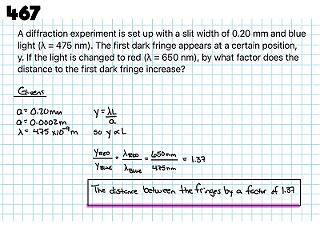 467
A diffraction experiment is set up with a slit width of 0.20 mm and blue
light (λ = 475 nm). The first dark fringe appears at a certain position,
y. If the light is changed to red (λ = 650 nm), by what factor does the
distance to the first dark fringe increase?
Givens
a= 0.20mm
a= 0.0002m
λ= 475 x10⁻⁹m
y = λL/a
so y ∝ L
yRED/yBLUE = λRED/λBLUE = 650nm/475nm = 1.37
The distance between the fringes by a factor of 1.37